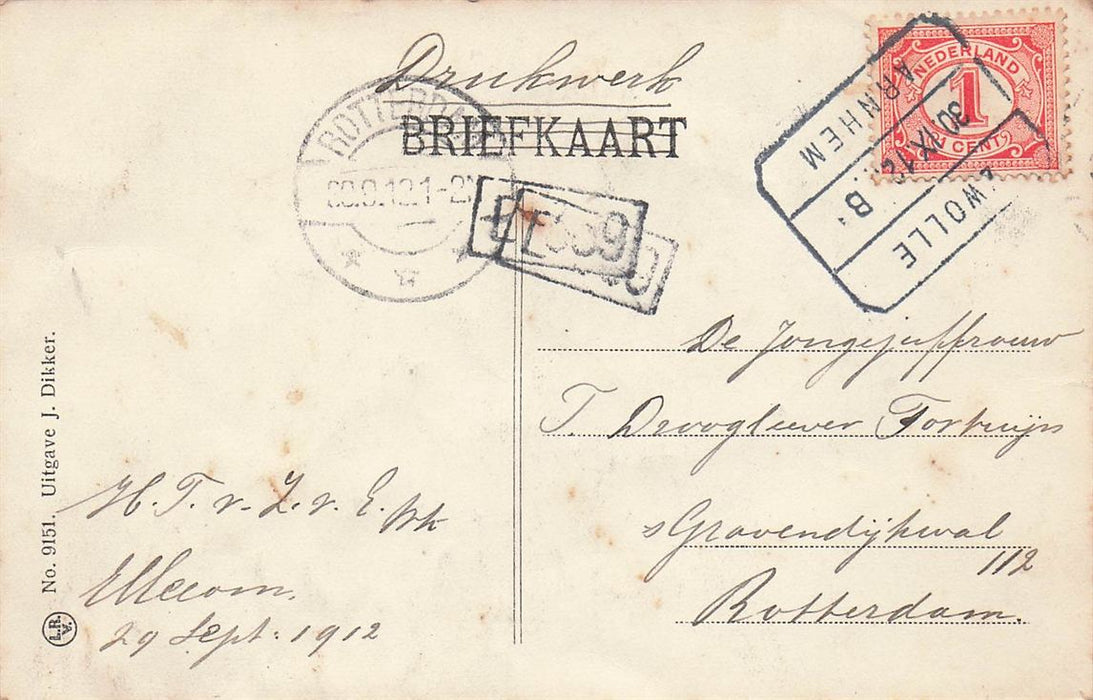 Drukwerk
BRIEFKAART
NEDERLAND
1
CENT
ARNHEM
30 IX 12 B.
ZWOLLE
ROTTERDAM
1-2
De Jongejuffrouw
T. Droogleever Fortuijn
sGravendijkwal
112
Rotterdam.
H. T. v. Z. v. E.
Ellecom.
29 Sept. 1912
No. 9151. Uitgave J. Dikker.
L.R.
V.